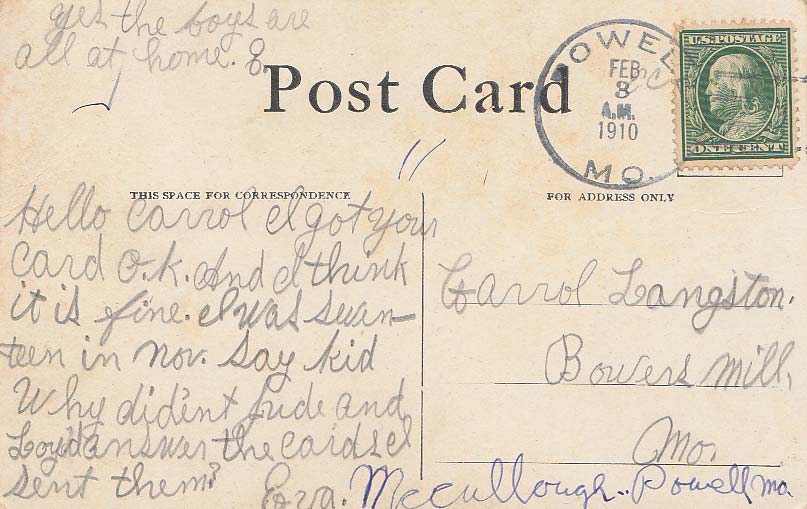 yes the boys are
all at home. E.
Post Card
POWELL
FEB
3
A.M.
1910
MO.
U.S. POSTAGE
ONE CENT
THIS SPACE FOR CORRESPONDENCE
Hello Carrol I got your
card O.K. And I think
it is fine. I was seven-
teen in Nov. Say kid
Why did'ent Jude and
Loyd answer the cards I
sent them?
Eva. McCullough.. Powell Mo.
FOR ADDRESS ONLY
Carrol Langston.
Bowers Mill,
Mo.